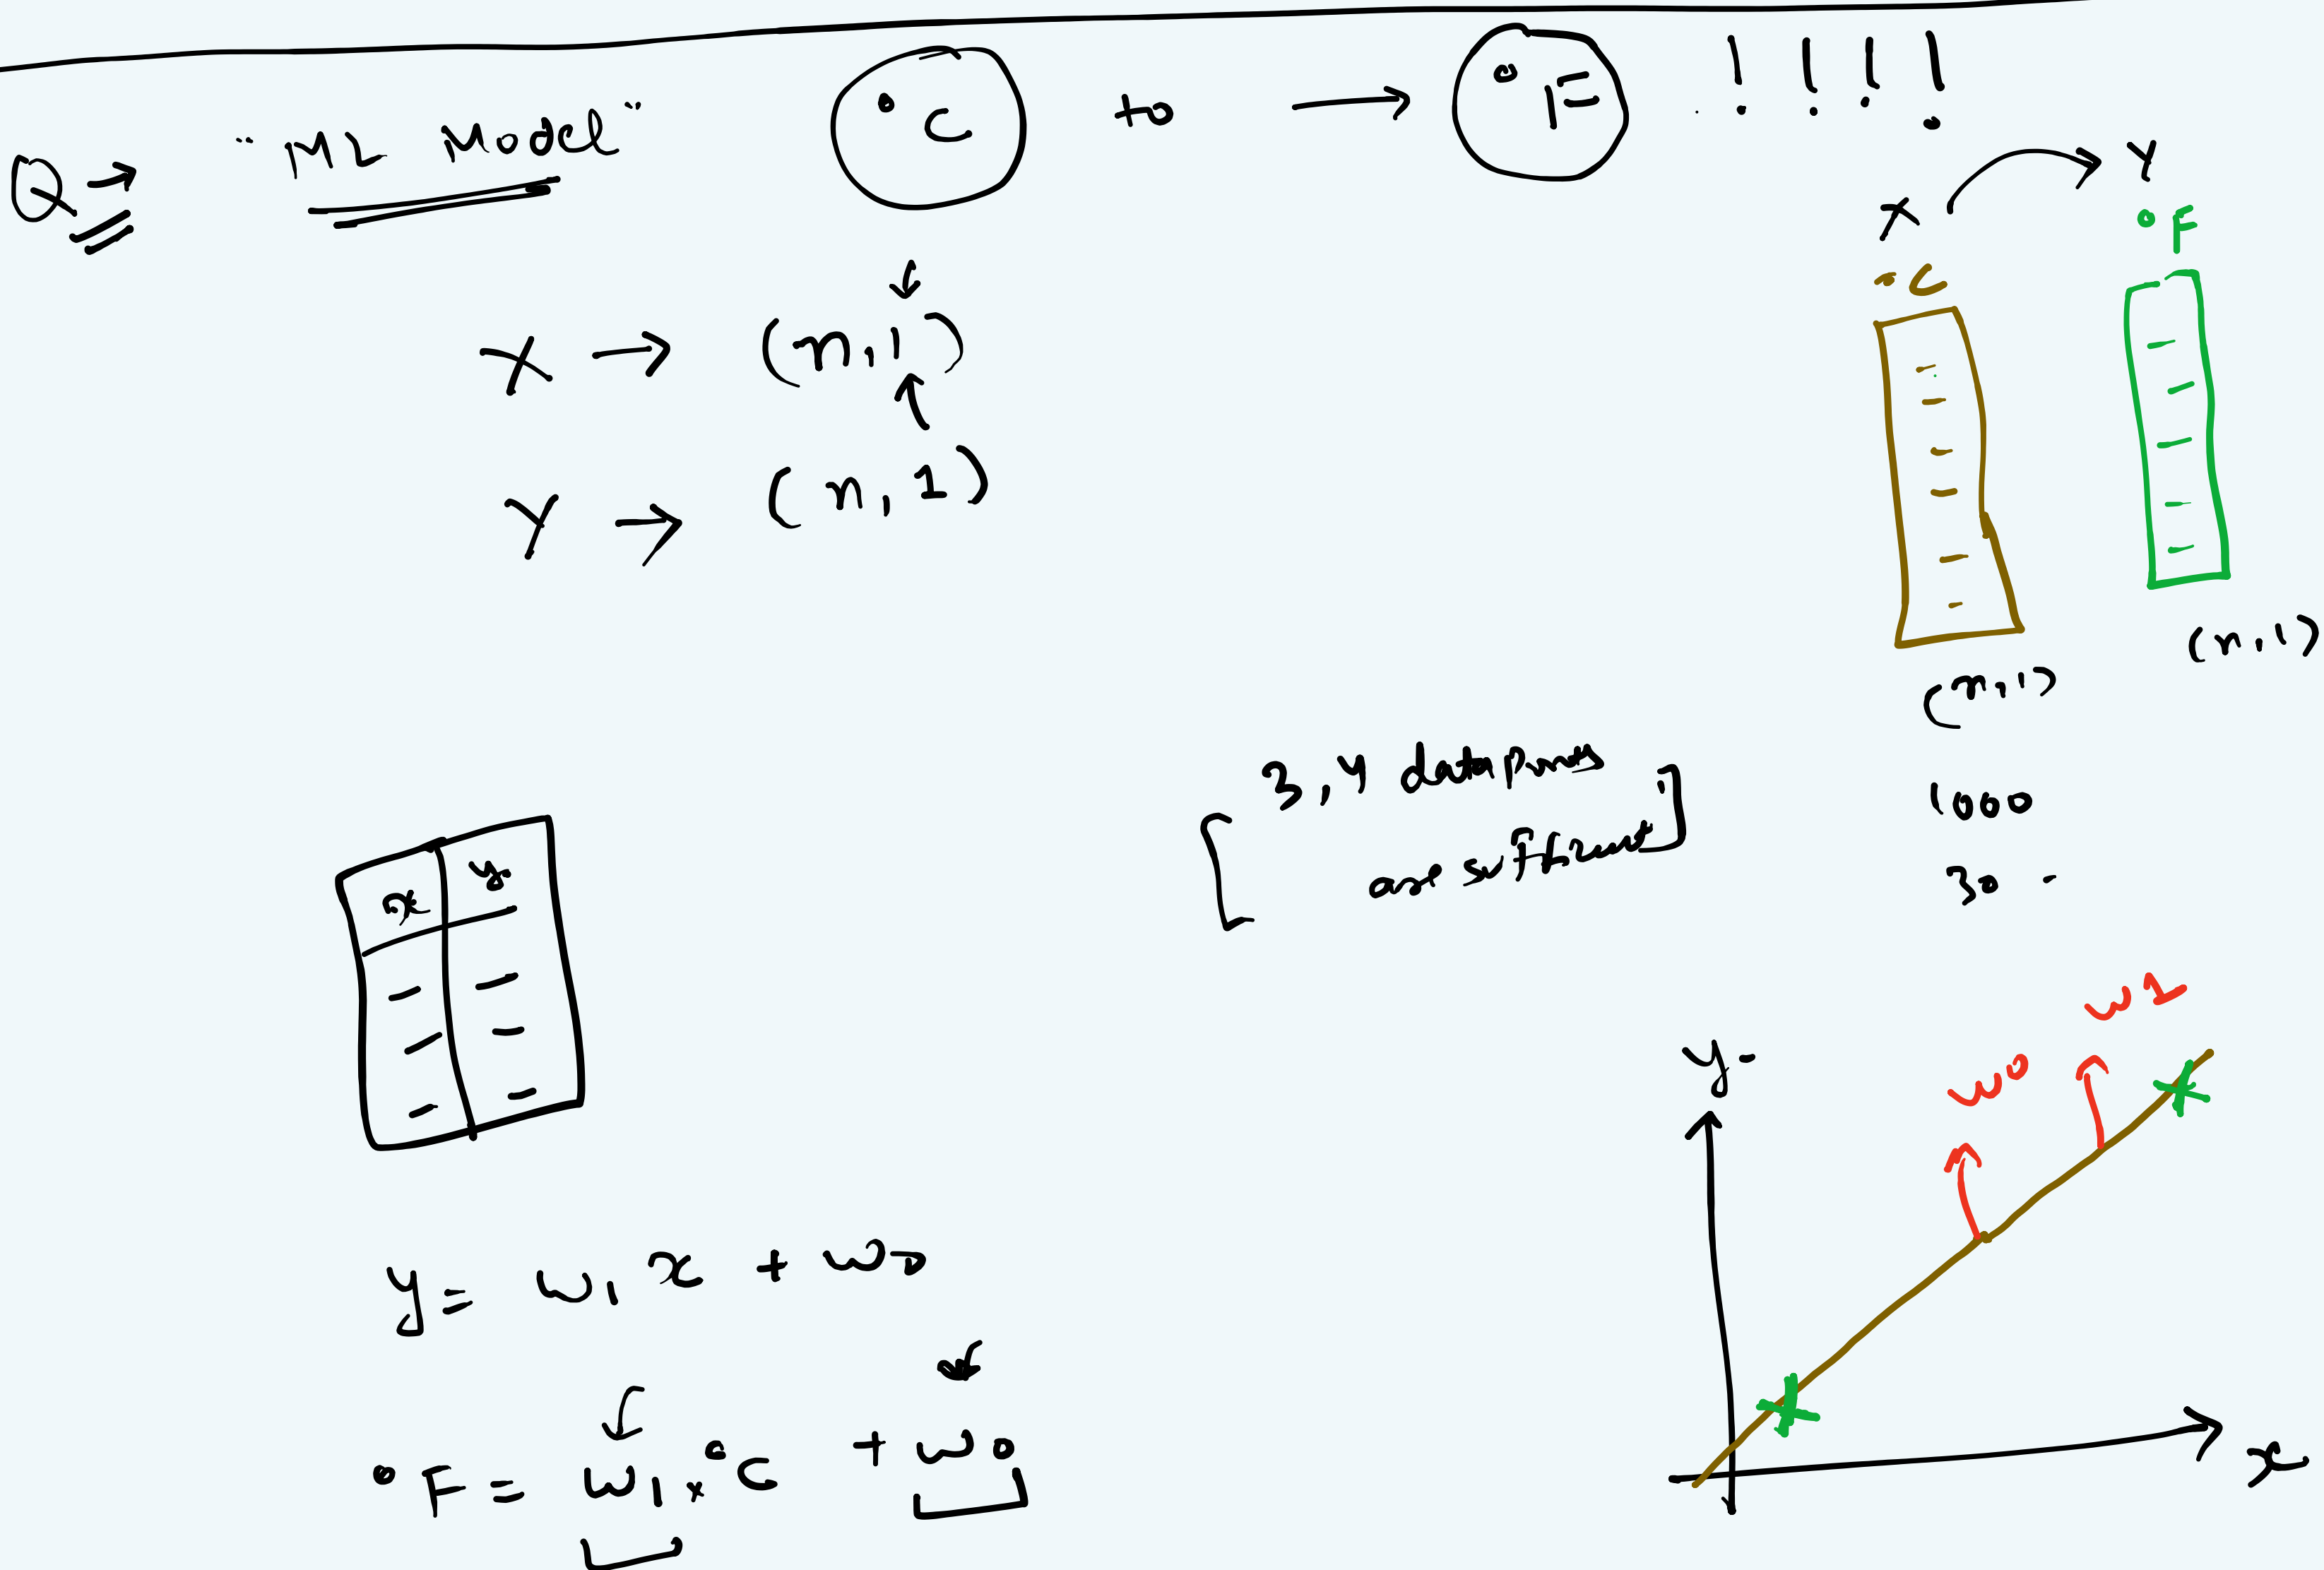 Q → "ML Model" °C to → °F !!!!
X → Y
°C °F
X → (n,1)
Y → (n,1)
(n,1) (n,1)
[3,4 datapoints
are sufficient]
1000
30
x y
y = w1 x + w0
°F = w1 x °C + w0
y
w0 w1
x